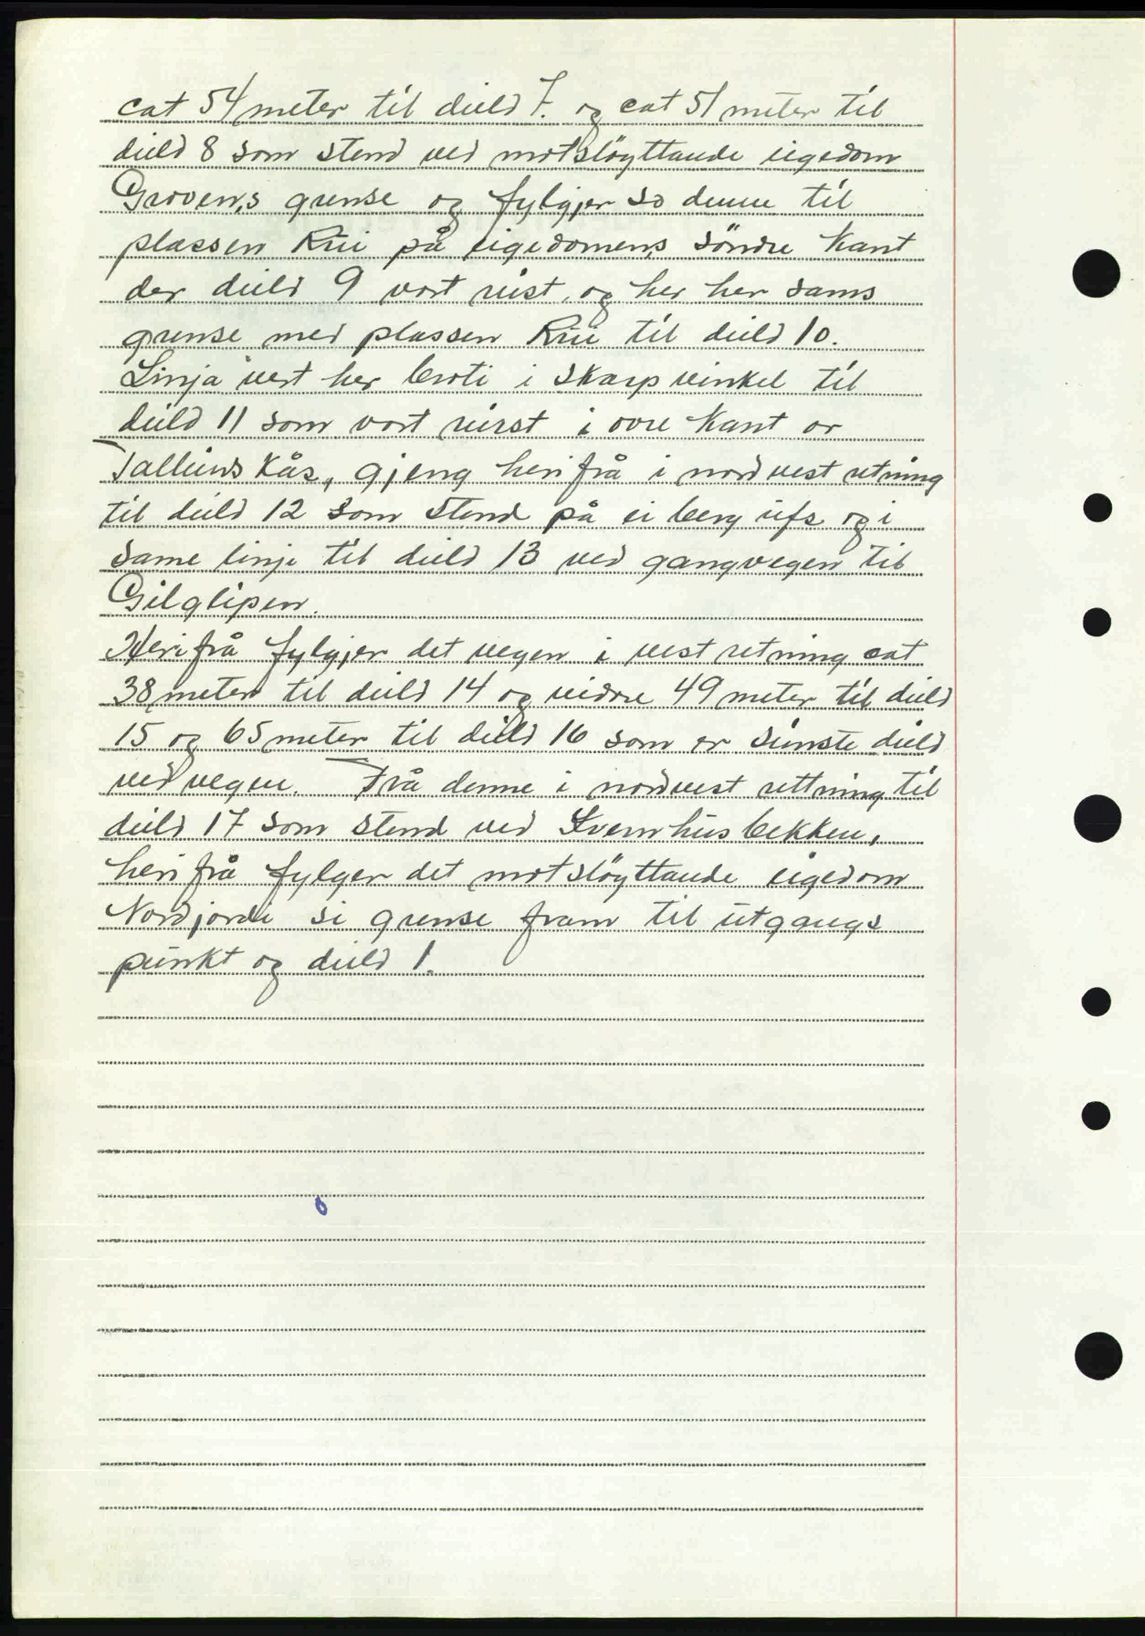 cat 54 meter til deild 7. og cat 51 meter til
deild 8 som stend ved motstöyttande eigedom
Groven,s grense og fylgjer so denne til
plassen Rui på eigedomens söndre kant
der deild 9 vart reist, og her her sams
grense med plassen Rui til deild 10.
Linja vert her broti i skarp vinkel til
deild 11 som vart reist i ovre kant or
Talleivs Kås, gjeng herifrå i nordvest retning
til deild 12 som stend på ei berg ufs og i
same linje til deild 13 ved gangvegen til
Gilglipen.
Herifrå fylgjer det vegen i vest retning cat
38 meter til deild 14 og vidre 49 meter til deild
15 og 65 meter til deild 16 som er sinste deild
ved vegen. Frå denne i nordvest rettning til
deild 17 som stend ved Kvernhusbekken,
herifrå fylger det motstöyttande eigedom
Nordjorde si grense fram til utgangs
punkt og deild 1.